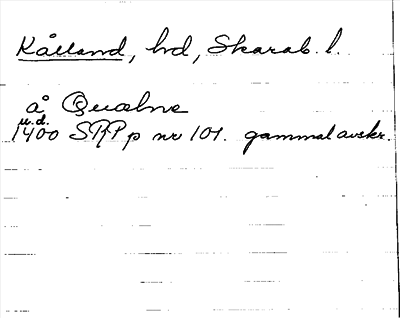 Kålland, hd, Skarab. l.
å Qualne
u.d.
1400 SRPp nr 101. gammal avskr.